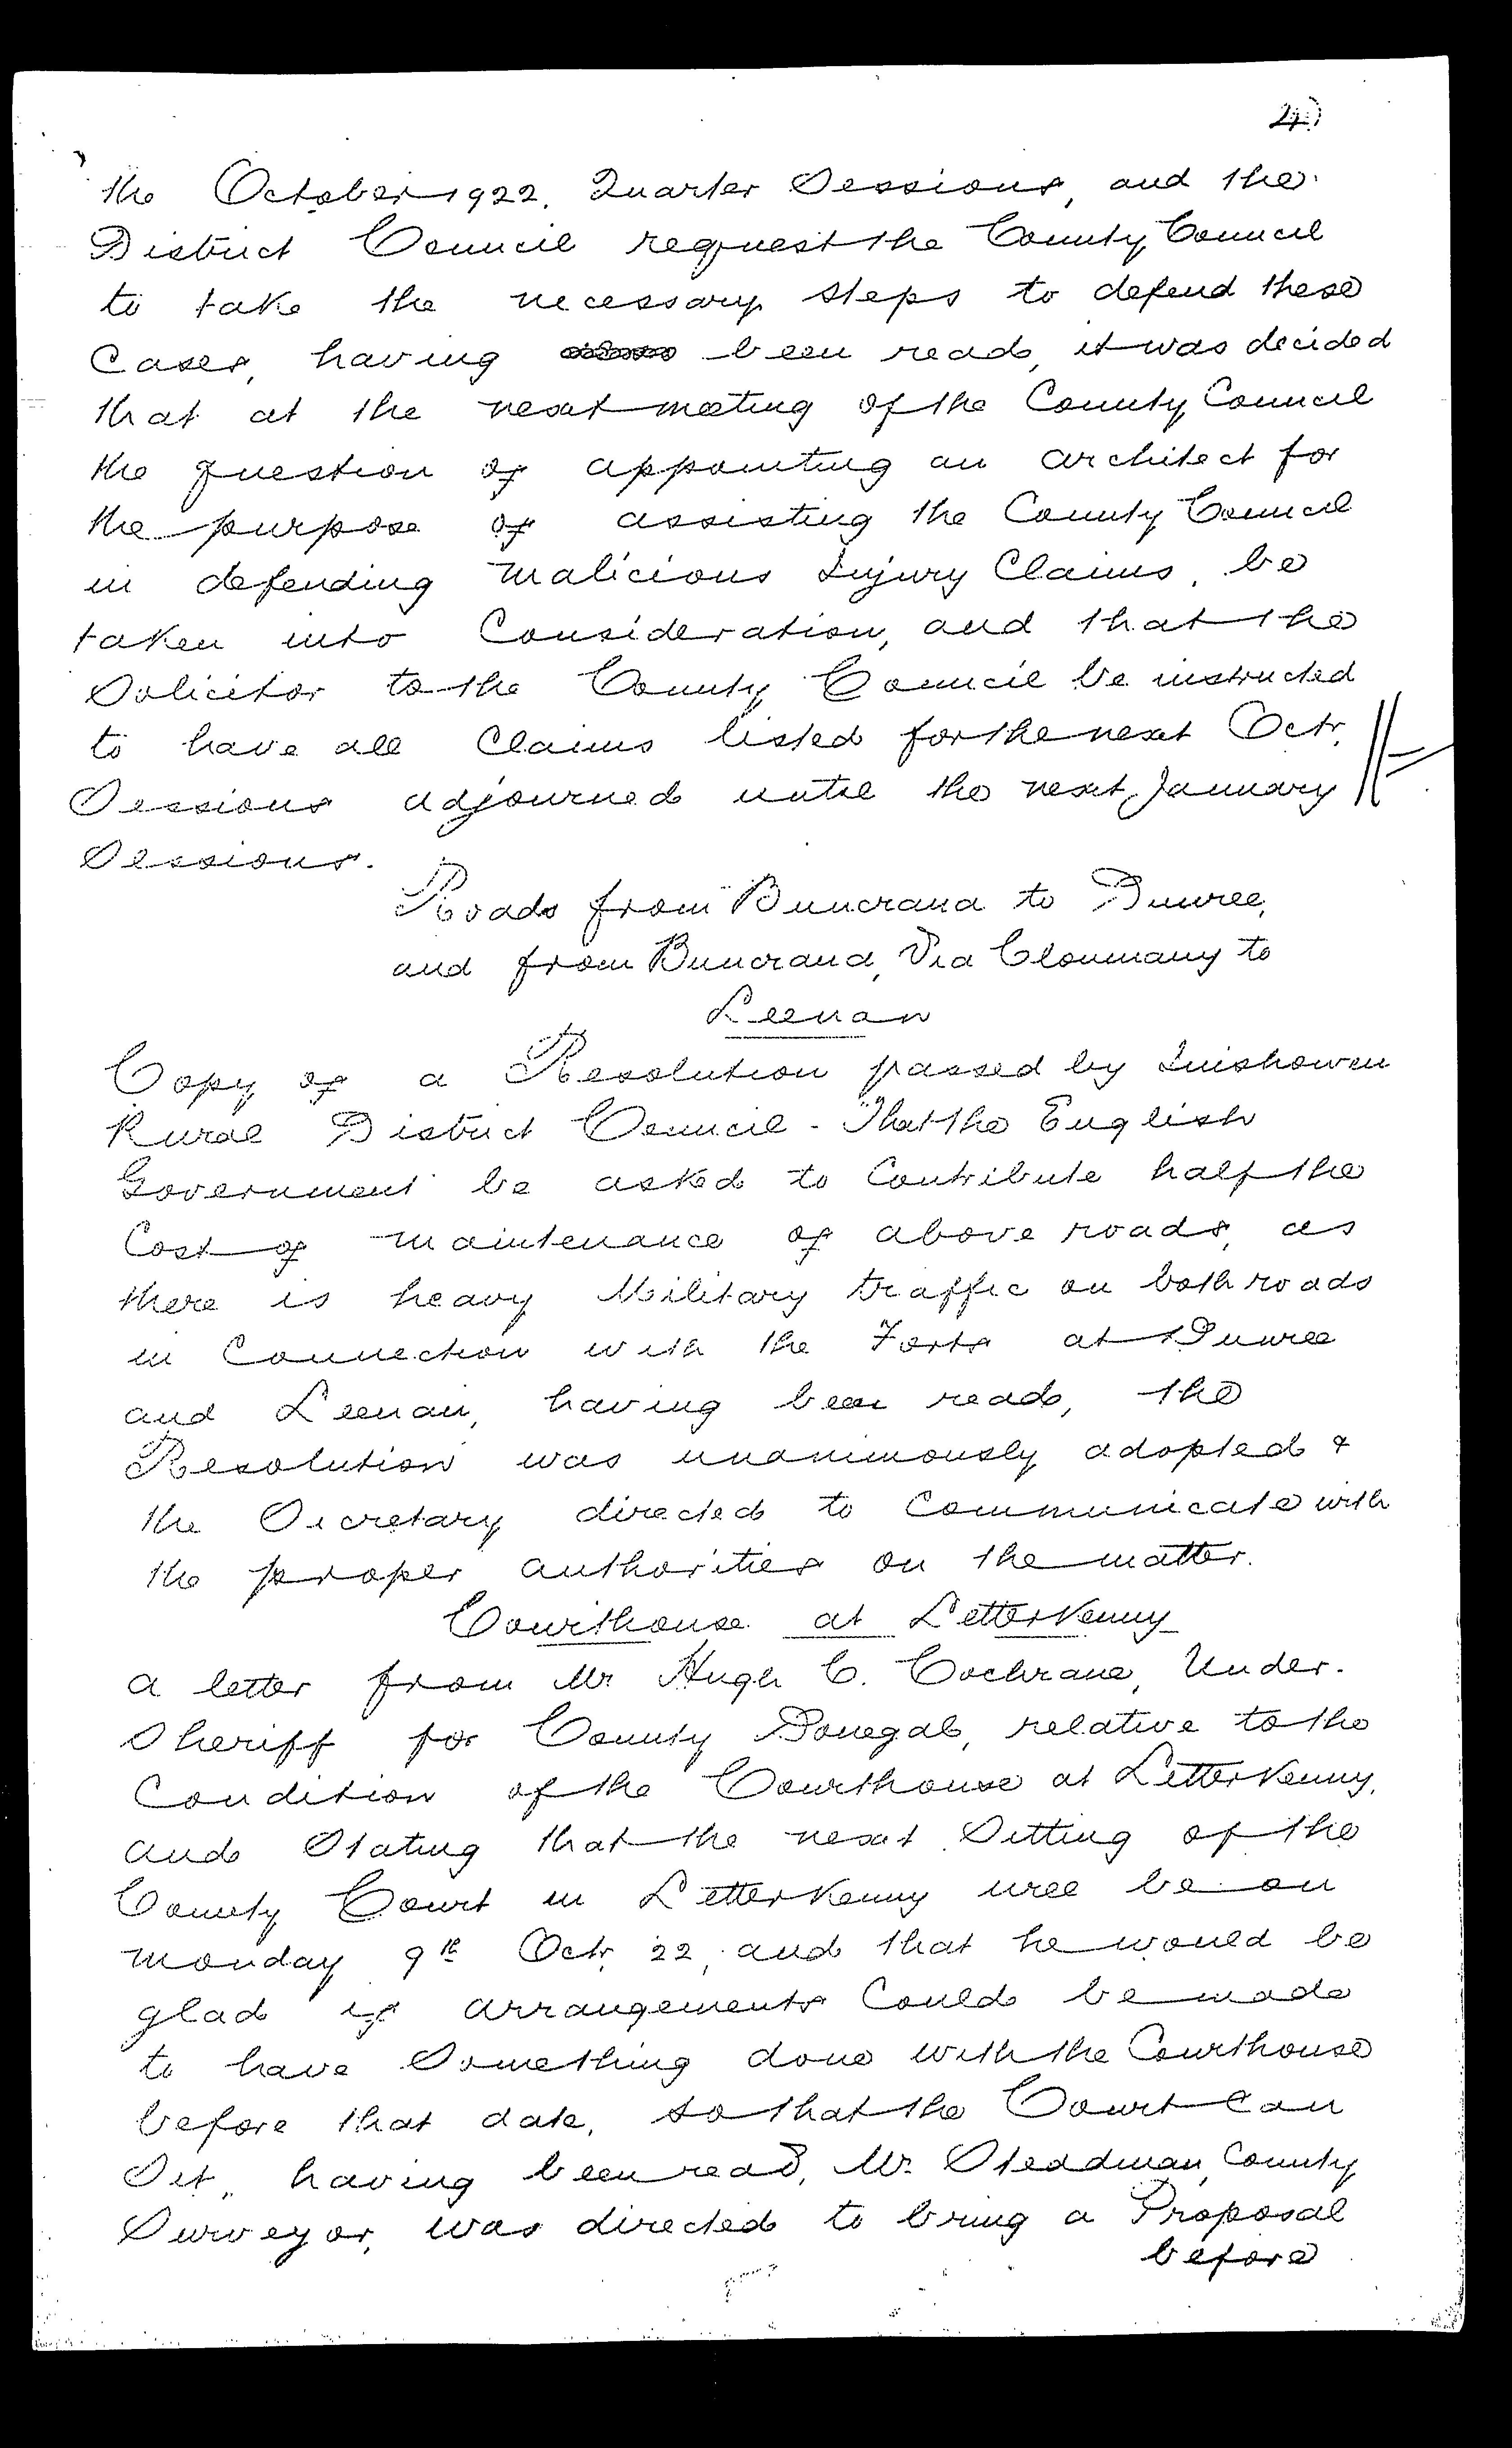 the October 1922, Quarter Sessions, and the
District Council request the County Council
to take the necessary steps to defend these
Cases, having been read, it was decided
that at the next meeting of the County Council
the question of appointing an architect for
the purpose of assisting the County Council
in defending Malicious Injury Claims, be
taken into Consideration, and that the
Solicitor to the County Council be instructed
to have all Claims listed for the next Octr.
Sessions adjourned until the next January
Sessions.
Roads from Buncrana to Dunree,
and from Buncrana, Via Clonmany to
Leenan
Copy of a Resolution passed by Inishowen
Rural District Council - That the English
Government be asked to Contribute half the
Cost of maintenance of above roads, as
there is heavy Military traffic on both roads
in Connection with the Forts at Dunree
and Leenan, having been read, the
Resolution was unanimously adopted &
the Secretary directed to Communicate with
the proper authorities on the matter.
Courthouse at Letterkenny
A letter from Mr Hugh C. Cochrane, Under-
Sheriff for County Donegal, relative to the
Condition of the Courthouse at Letterkenny,
and Stating that the next Sitting of the
County Court in Letterkenny will be on
Monday 9th Octr. 22, and that he would be
glad if arrangements Could be made
to have Something done with the Courthouse
before that date, so that the Court Can
Sit, having been read, Mr. Steadman, County
Surveyor, was directed to bring a Proposal
before